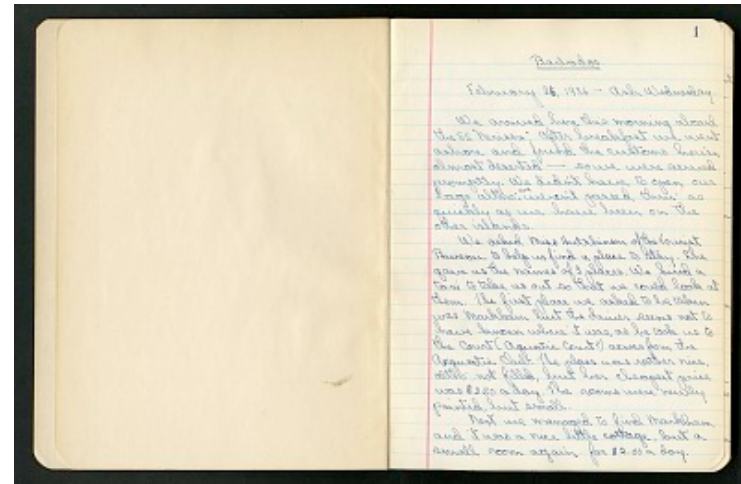 1
Barbados
February 26, 1936 - Ash Wednesday.
We arrived here this morning aboard
the SS "Nerissa". After breakfast we went
ashore and found the customs house
almost deserted — so we were served
promptly. We didn't have to open our
bags altho' we weren't passed thru' as
quickly as we have been on the
other islands.
We asked Miss Hutchinson of the Tourist
Bureau to help us find a place to stay. She
gave us the names of 3 places. We hired a
taxi to take us out so that we could look at
them. The first place we asked to be taken
was Markham but the driver seems not to
have known where it was as he took us to
the Court (Aquatic Court) across from the
Aquatic Club. The place was rather nice,
altho' not filled, but her cheapest price
was $2.50 a day. The rooms were newly
painted, but small.
Next we managed to find Markham
and it was a nice little cottage, but a
small room again for $2.00 a day.